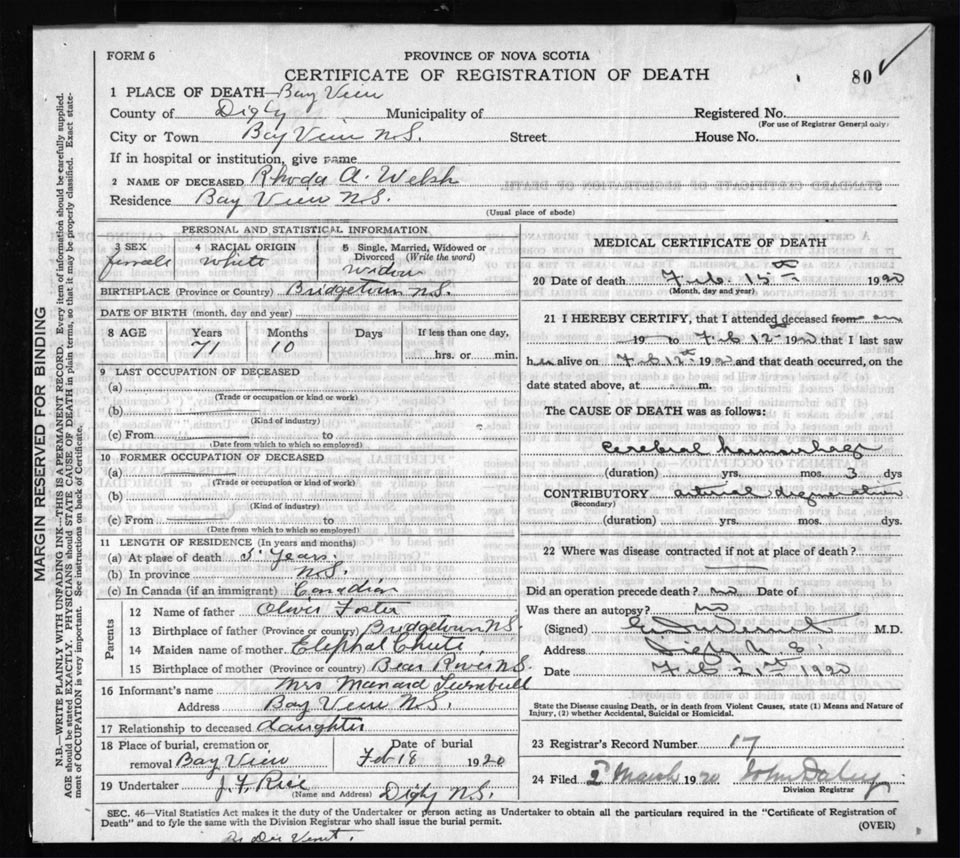 FORM 6
PROVINCE OF NOVA SCOTIA
CERTIFICATE OF REGISTRATION OF DEATH
80
1 PLACE OF DEATH—Bay View
County of Digby Municipality of Registered No.
(For use of Registrar General only)
City or Town Bay View N.S. Street House No.
If in hospital or institution, give name
2 NAME OF DECEASED Rhoda A. Welsh
Residence Bay View N.S.
(Usual place of abode)
PERSONAL AND STATISTICAL INFORMATION
3 SEX 4 RACIAL ORIGIN 5 Single, Married, Widowed or Divorced (Write the word)
female White Widow
BIRTHPLACE (Province or Country) Bridgetown N.S.
DATE OF BIRTH (month, day and year)
8 AGE Years Months Days If less than one day,
71 10 hrs. or min.
9 LAST OCCUPATION OF DECEASED
(a)
(Trade or occupation or kind or work)
(b)
(Kind of industry)
(c) From to
(Date from which to which so employed)
10 FORMER OCCUPATION OF DECEASED
(a)
(Trade or occupation or kind of work)
(b)
(Kind of industry)
(c) From to
(Date from which to which so employed)
11 LENGTH OF RESIDENCE (In years and months)
(a) At place of death 5 Years
(b) In province N.S.
(c) In Canada (if an immigrant) Canadian
Parents
12 Name of father Oliver Foster
13 Birthplace of father (Province or country) Bridgetown N.S.
14 Maiden name of mother Elephal Chute
15 Birthplace of mother (Province or country) Bear River N.S.
16 Informant's name Mrs Manard Turnbull
Address Bay View N.S.
17 Relationship to deceased daughter
18 Place of burial, cremation or Date of burial
removal Bay View Feb 18 1920
19 Undertaker J. F. Rice
(Name and Address) Digby N.S.
MEDICAL CERTIFICATE OF DEATH
20 Date of death Feb. 15th 1920
(Month, day and year)
21 I HEREBY CERTIFY, that I attended deceased from on
19 to Feb 12th 1920 that I last saw
her alive on Feb 12th 1920 and that death occurred, on the
date stated above, at m.
The CAUSE OF DEATH was as follows:
cerebral haemorrhage
(duration) yrs. mos. 3 dys
CONTRIBUTORY arterial degeneration
(Secondary)
(duration) yrs. mos. dys.
22 Where was disease contracted if not at place of death?
Did an operation precede death? no Date of
Was there an autopsy? no
(Signed) M.D.
Address Digby N.S.
Date Feb. 21st 1920
State the Disease causing Death, or in death from Violent Causes, state (1) Means and Nature of
Injury, (2) whether Accidental, Suicidal or Homicidal.
23 Registrar's Record Number 17
24 Filed 2 March 1920 John Daley
Division Registrar
SEC. 46—Vital Statistics Act makes it the duty of the Undertaker or person acting as Undertaker to obtain all the particulars required in the "Certificate of Registration of
Death" and to fyle the same with the Division Registrar who shall issue the burial permit.
(OVER)
MARGIN RESERVED FOR BINDING
N.B.—WRITE PLAINLY WITH UNFADING INK—THIS IS A PERMANENT RECORD. Every item of information should be carefully supplied.
AGE should be stated EXACTLY. PHYSICIANS should STATE CAUSE OF DEATH in plain terms, so that it may be properly classified. Exact state-
ment of OCCUPATION is very important. See instructions on back of Certificate.